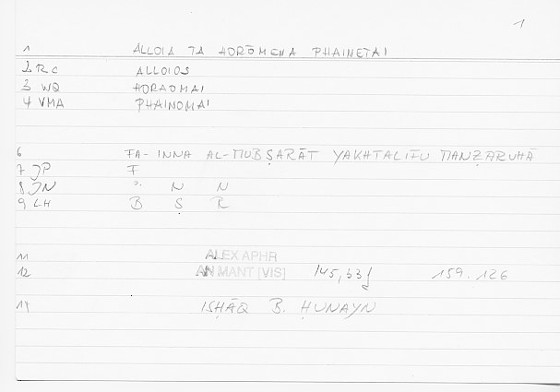 1
1 ALLOIA TA HORŌMENA PHAINETAI
2 RC ALLOIOS
3 WQ HORAOMAI
4 VMA PHAINOMAI
6 FA-INNA AL-MUBṢARĀT YAKHTALIFU MANẒARUHĀ
7 JP F
8 JN N N
9 LH B Ṣ R
11 ALEX APHR
12 AN MANT [VIS] 145,33f 159.126
14 ISḤĀQ B. ḤUNAYN